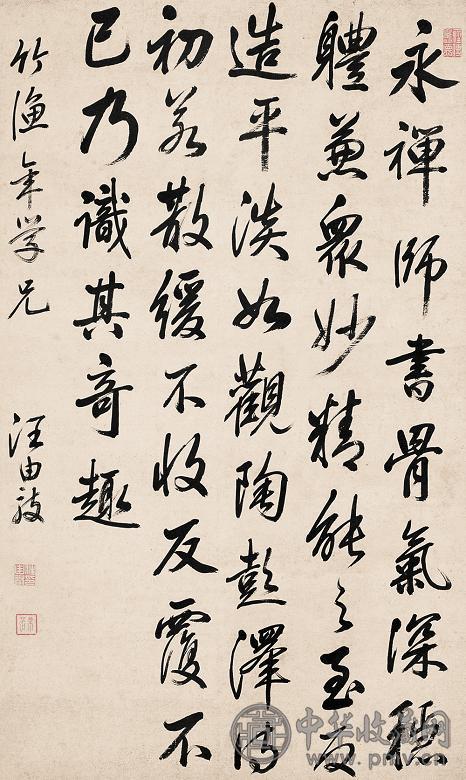 永禪師書骨氣深穩
體兼眾妙精能之至反
造平淡如觀陶彭澤詩
初若散緩不收反覆不
已乃識其奇趣
竹漁年學兄
汪由敦
中华收藏网
www.pmv.cn